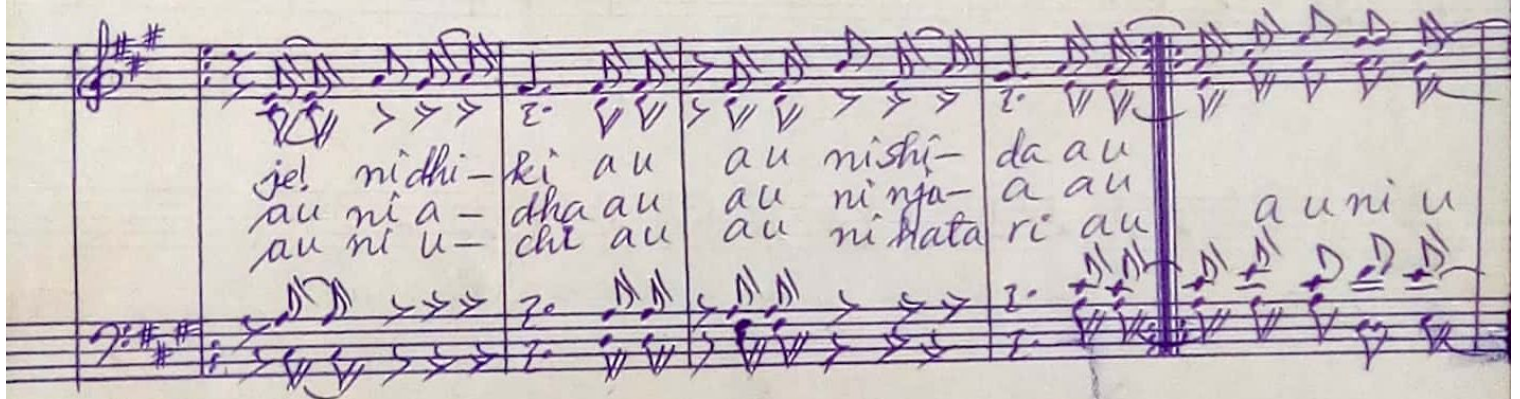 je! nidhi- ki au au nishi- da au
au ni a- dha au au ni nja- a au
au ni u- chi au au ni hata ri au a u ni u